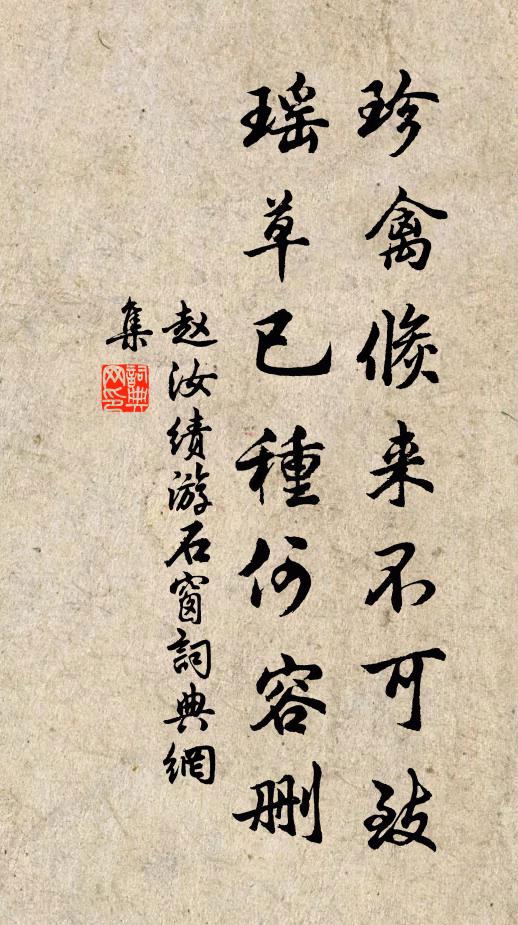 珍禽倏来不可致
瑶草已種何容删
赵汝绩游石窗詞典網
集
詞典网印